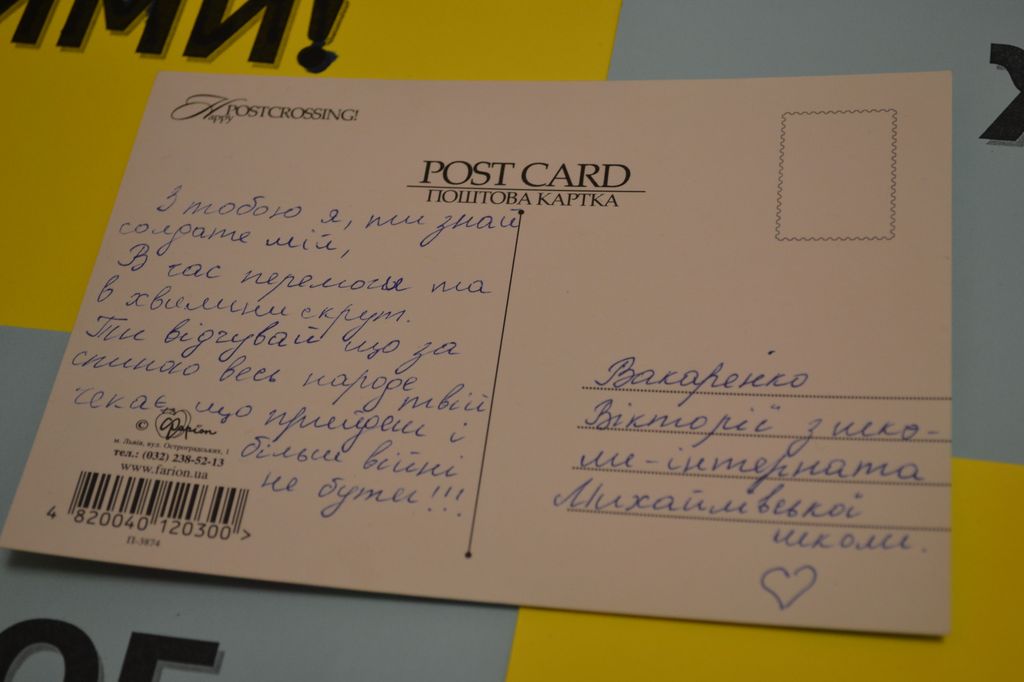 ИМИ!
Happy POSTCROSSING!
POST CARD
ПОШТОВА КАРТКА
З тобою я, ти знай
солдате мій,
В час перемоги та
в хвилини скрут.
Ти відчувай що за
спиною весь народе твій
чекає, що прийдеш і
більш війні
не бути!!!
© Фarion
м. Львів, вул. Остроградських, 1
тел.: (032) 238-52-13
www.farion.ua
4 820040 120300 >
П-3874
Вакаренко
Вікторії з шко-
ли-інтерната
Михайлівської
школи.
Х
ОГ